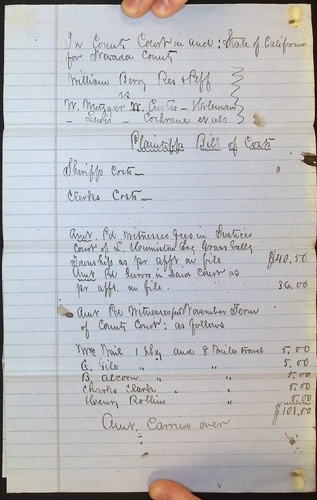 In County Court in and : State of California
for Nevada County
William Berry Res & Plff
vs
W. Metzger W. Curtis - Holeman
- Lewis - Cochrane et als
Plaintiffs Bill of Costs
Sheriffs Costs
Clerks Costs
Amt. Pd Witnesses fees in Justices
Court of S. Esq Grass Valley
Township as pr afft. on file $40.50
Amt Pd Jurors in said Court as
pr afft. on file. 36.00
Amt Pd Witnesses for November Term
of County Court : as follows
Wm Vail 1 day and 8 miles travel 5.00
G. Gilo " " 5.00
B. Alcorn " " 5.00
Charles Clark " " 5.00
Henry Rollins " " 5.00
$101.50
Amt. Carried over